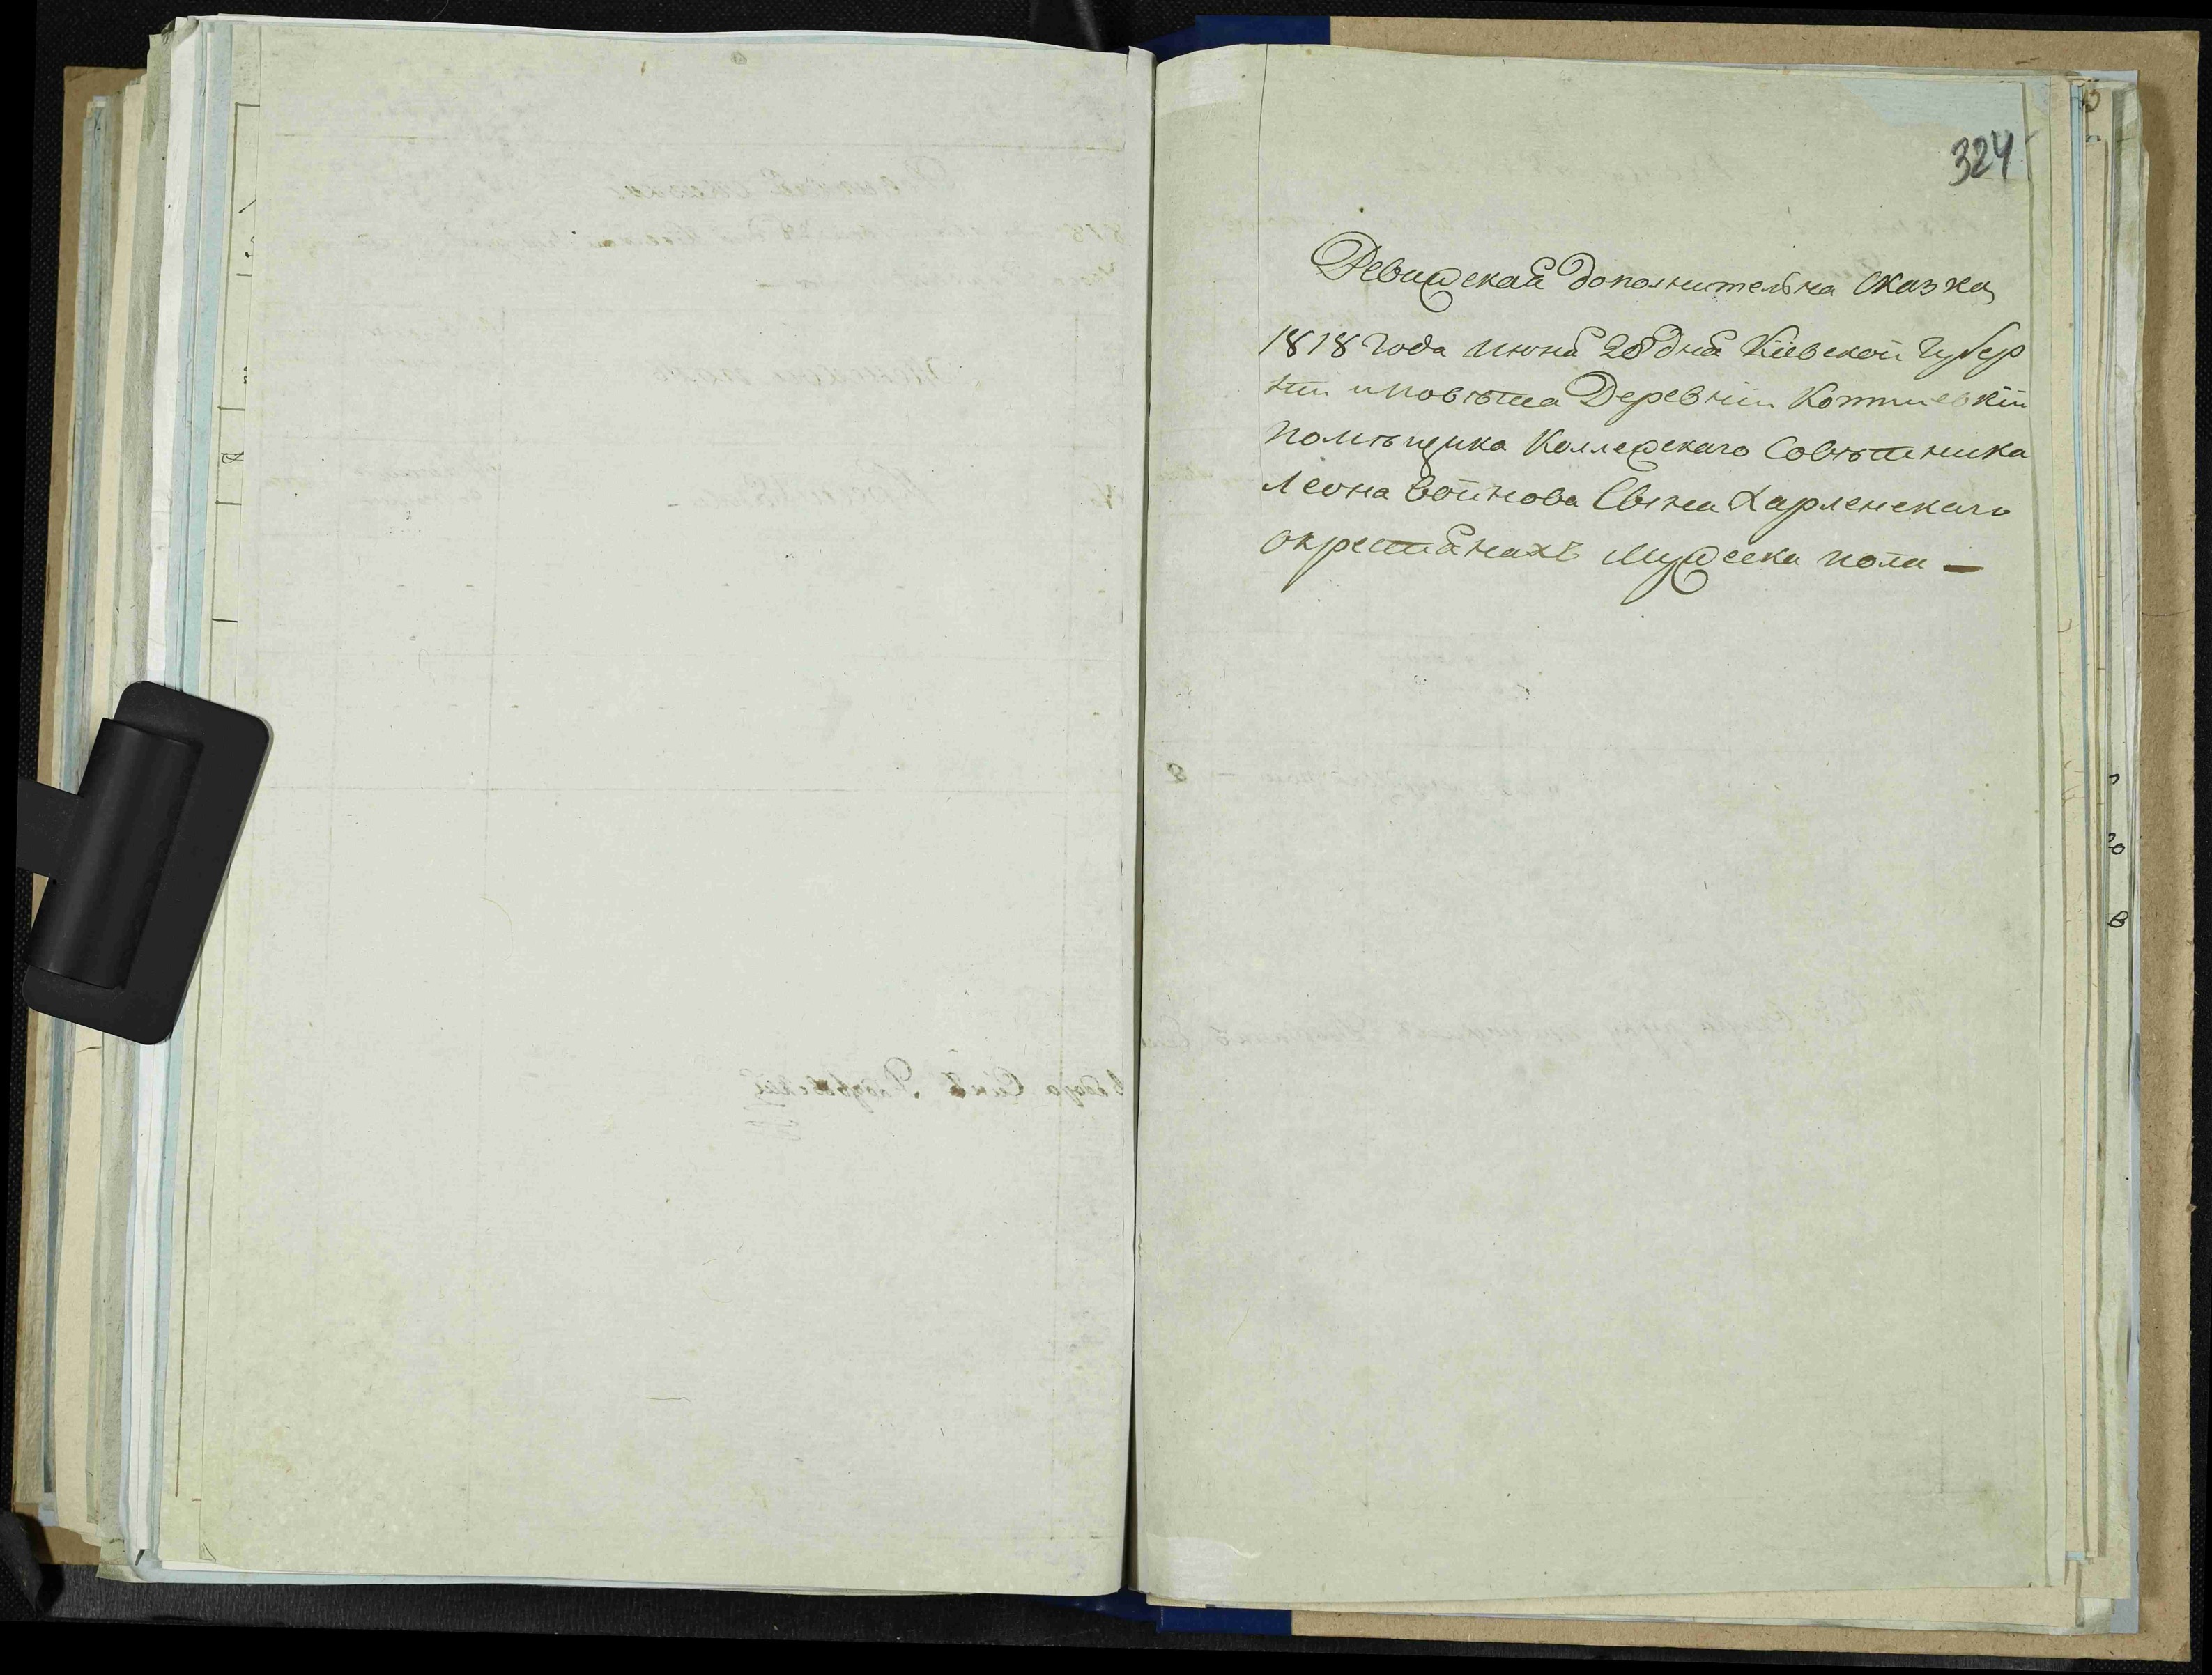 324
Ревижская дополнительна сказка
1818 года июня 28 дня Киевской Губер
нии и повѣта Деревнии
помѣщика Коллежскаго Совѣтника
Леона Воинова Сына Харленскаго
окрестянахъ мужеска пола —